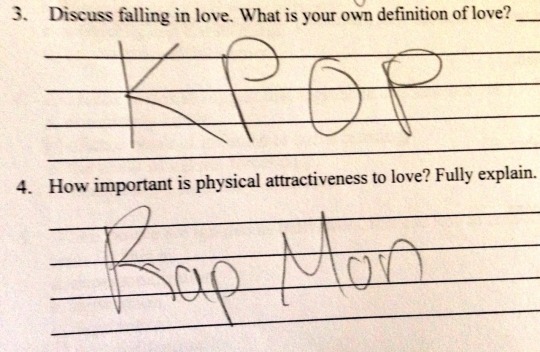 3. Discuss falling in love. What is your own definition of love?
KPOP
4. How important is physical attractiveness to love? Fully explain.
Rap Mon